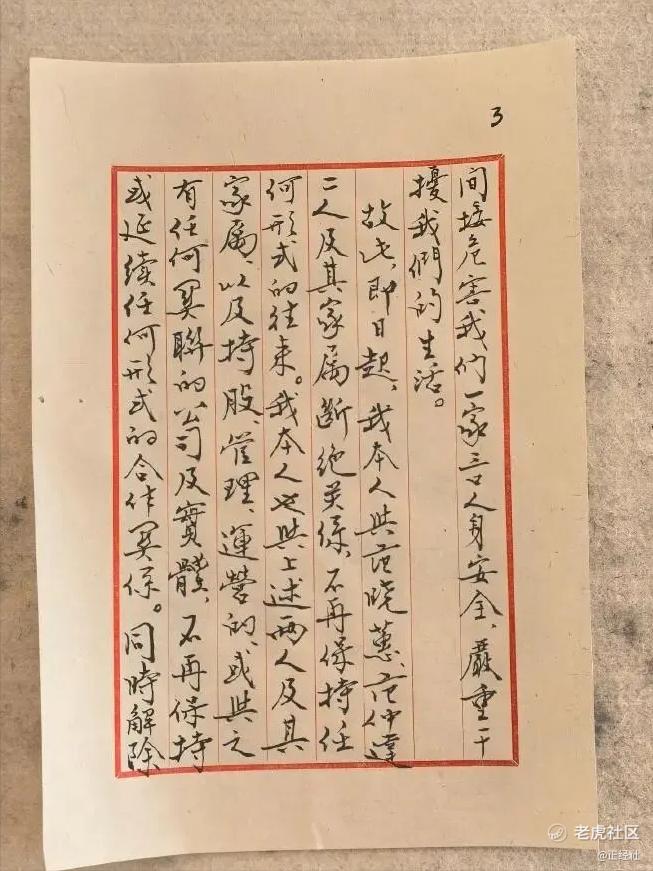 3
间接危害我们一家三口人身安全、嚴重干
擾我們的生活。
故此,即日起,我本人與范晓蕙、范仲達
二人及其家属斷绝关係,不再保持任
何形式的往来。我本人也與上述两人及其
家属,以及持股、管理、運營的,或與之
有任何関聯的公司及實體,不再保持
或延续任何形式的合作関係。同時解除
老虎社区
@正经社